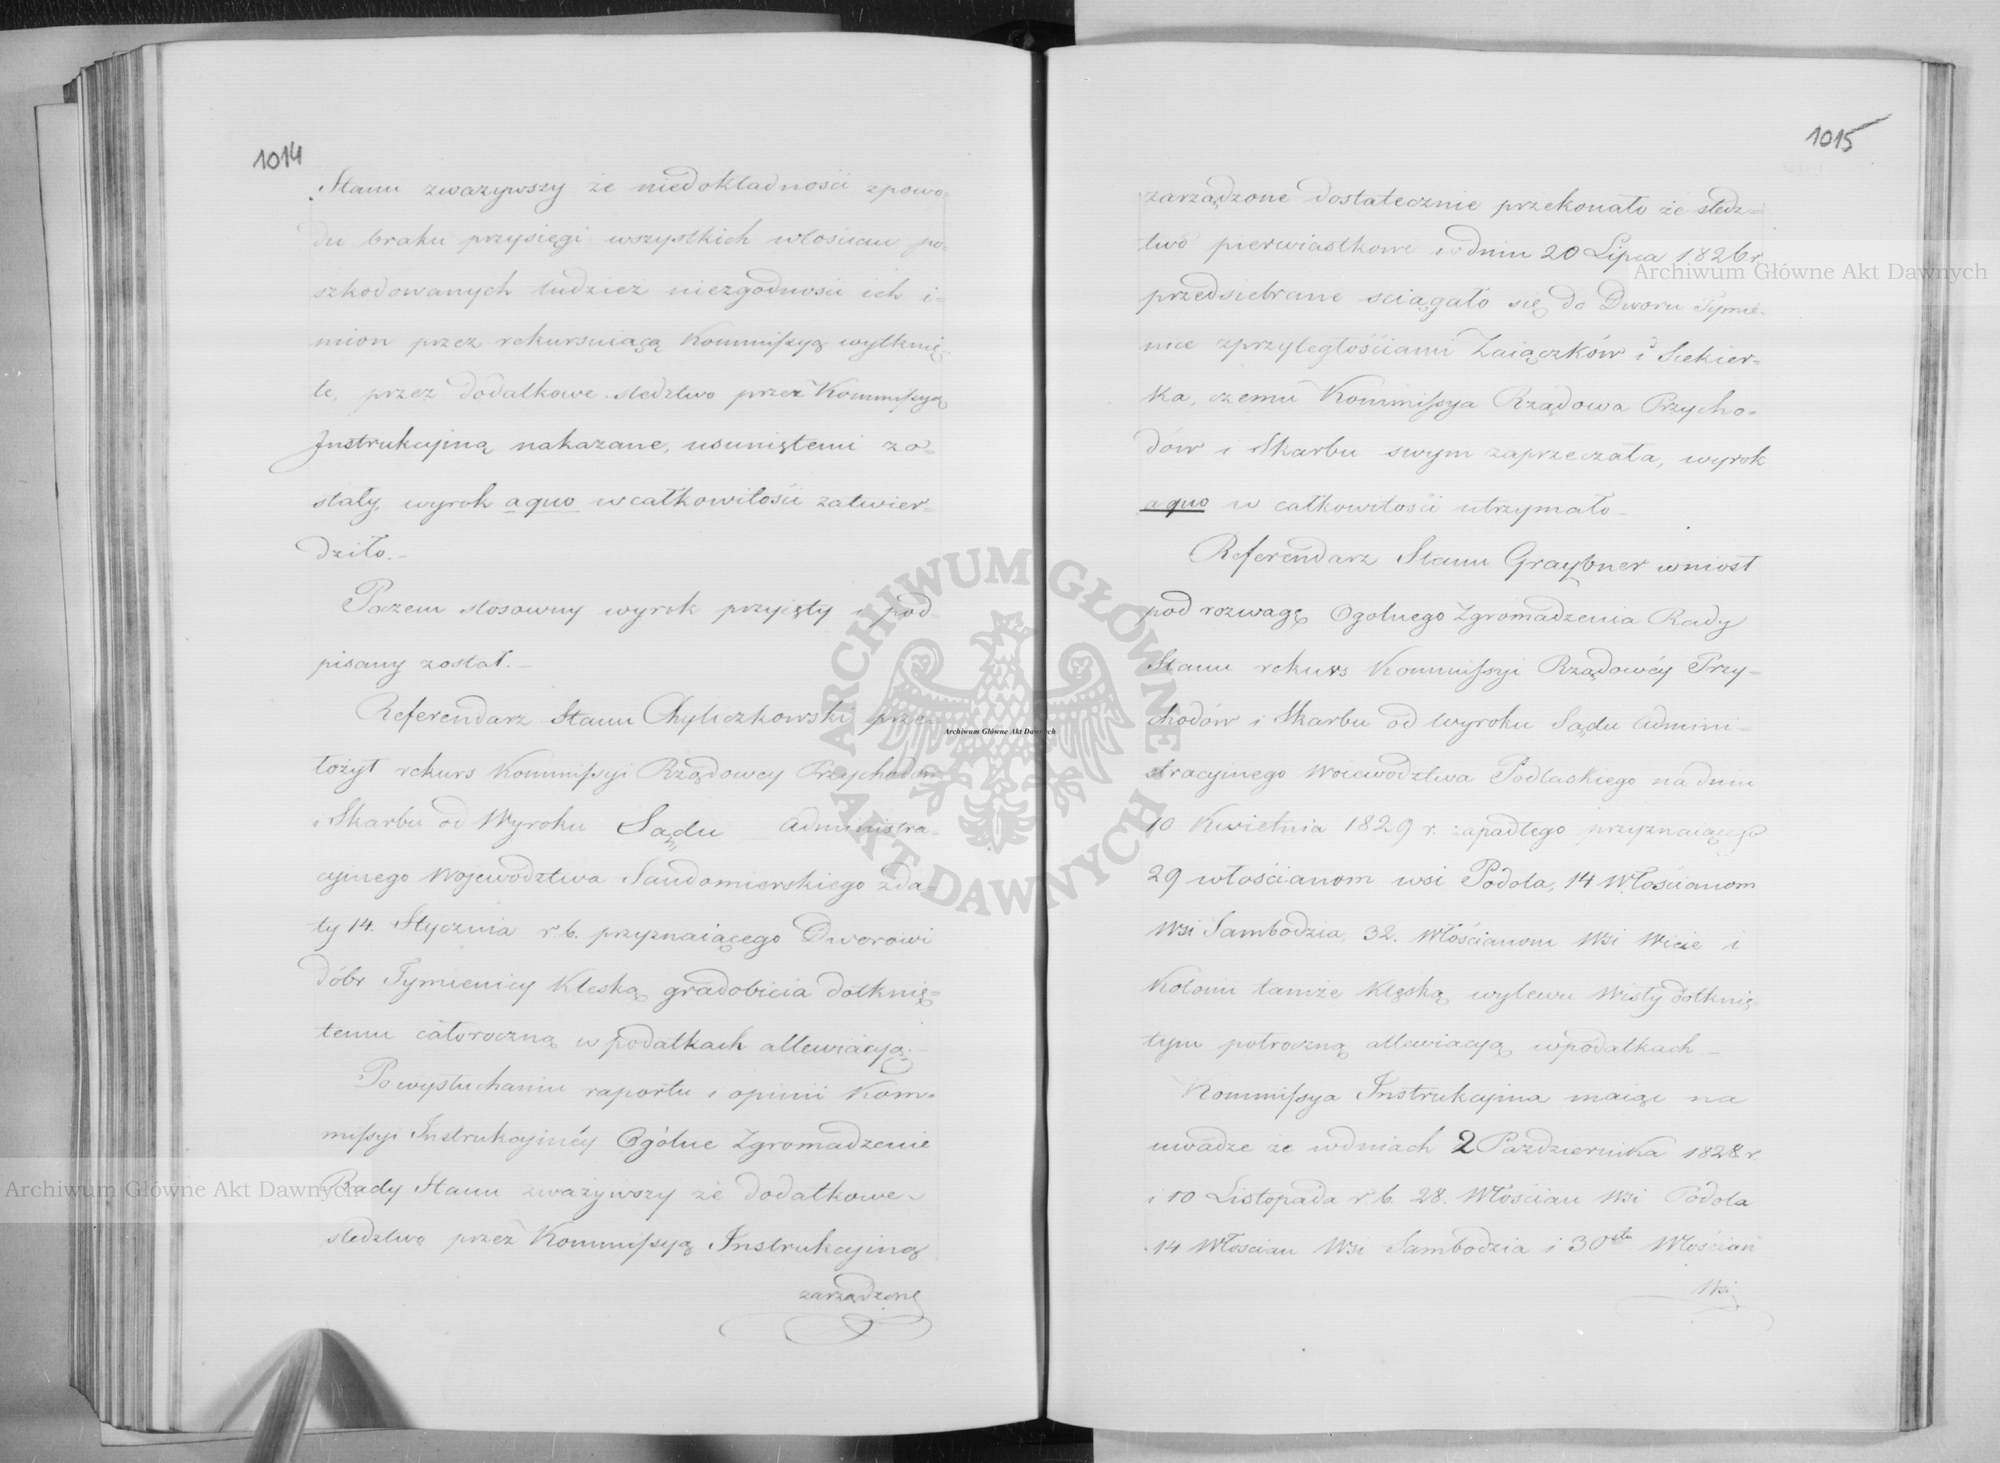 1014
Stanu zważywszy że niedokładności zpowo-
du braku przysięgi wszystkich włościan po-
szkodowanych tudzież niezgodności ich i-
mion przez rekursuiącą Kommissyą wytknię-
te, przez dodatkowe sledztwo przez Kommissyą
Instrukcyiną nakazane, usuniętemi zo-
stały, wyrok a quo w całkowitości zatwier-
dziło.-
Poczem stosowny wyrok przyięty i pod-
pisany został.-
Referendarz Stanu Chyliczkowski prze-
łożył rekurs Kommissyi Rządowey Przychodów
i Skarbu od Wyroku Sądu Administra-
cyinego Województwa Sandomierskiego zda-
ty 14. Stycznia r. b. przyznaiącego Dworowi
dóbr Tymienicy Klęską gradobicia dotknię-
temu całoroczną w podatkach allewiacyą.-
Po wysłuchaniu raportu i opinii Kom-
missyi Instrukcyinéy Ogólne Zgromadzenie
Rady Stanu zważywszy że dodatkowe
sledztwo przez Kommissyą Instrukcyiną
zarządzone
1015
zarządzone dostatecznie przekonało że sledz-
two pierwiastkowe w dniu 20 Lipca 1826 r.
przedsiebrane sciągało się do Dworu Tymie-
nice z przyległościami Zaiączków i Siekier-
ka, czemu Kommissya Rządowa Przycho-
dów i Skarbu swym zaprzeczała, wyrok
a quo w całkowitości utrzymało-
Referendarz Stanu Graybner wniosł
pod rozwagę Ogolnego Zgromadzenia Rady
Stanu rekurs Kommissyi Rządowéy Przy-
chodów i Skarbu od wyroku Sądu Admini-
stracyinego Woiewodztwa Podlaskiego na dniu
10 Kwietnia 1829 r. zapadłego przyznaiącego
29 włościanom wsi Podola, 14 Włościanom
Wsi Sambodzia, 32. Włościanom Wsi Wicie i
Kolonii tamże Klęską wylewu Wisły dotknię-
tym połroczną allewiacyą w podatkach-
Kommissya Instrukcyina maiąc na
uwadze że w dniach 2 Pazdziernika 1828 r.
i 10 Listopada r. b. 28. Włościan Wsi Podola
14 Włoscian Wsi Sambodzia i 30stu Włościan
Wsi
Archiwum Główne Akt Dawnych
Archiwum Główne Akt Dawnych
Archiwum Główne Akt Dawnych
ARCHIWUM GŁÓWNE AKT DAWNYCH